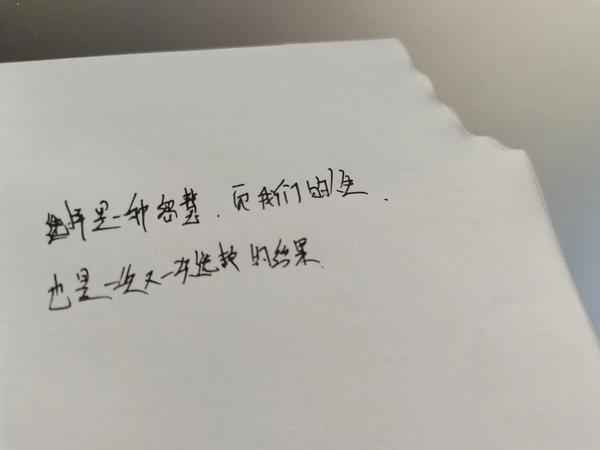 选择是一种智慧.而我们的人生.
也是一次又一次选择的结果.